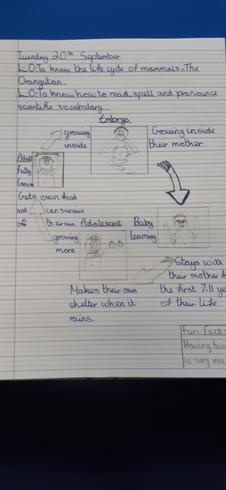 Tuesday 20th September
L.O:To know the life cycle of mammals-The
Orangutan.
L.O:To know how to read, spell and pronounce
scientific vocabulary.
Embryo
growing
inside
Growing inside
their mother
Adult
fully
Gets own food
and can survive
on their own.
Adolescent
growing
more
Baby
learning
Stays with
their mother for
the first 7-11 ye
of their life.
Makes their own
shelter when it
rains.
Fun Fact:
Having
is very